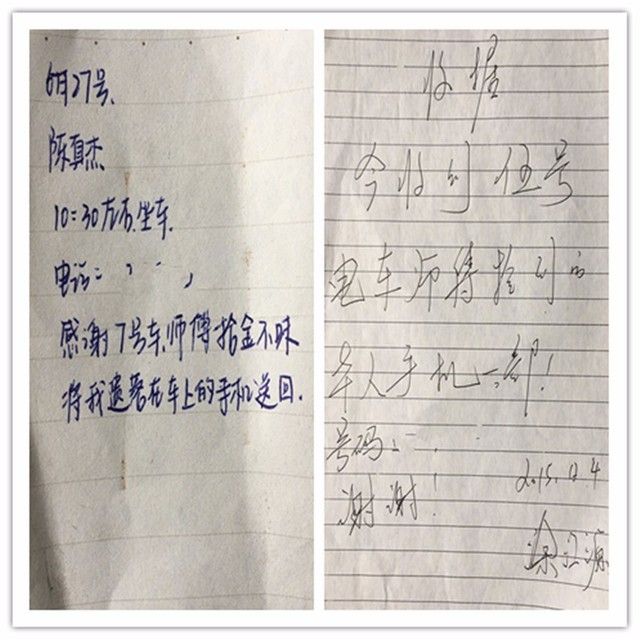 6月27号.
陈真杰
10=30左右.坐车.
电话:
感谢7号车.师傅拾金不昧
将我遗落在车上的手机送回.
收据
今收到伍号
电车师傅捡到的
本人手机一部!
号码:
谢谢!
2015.12.4